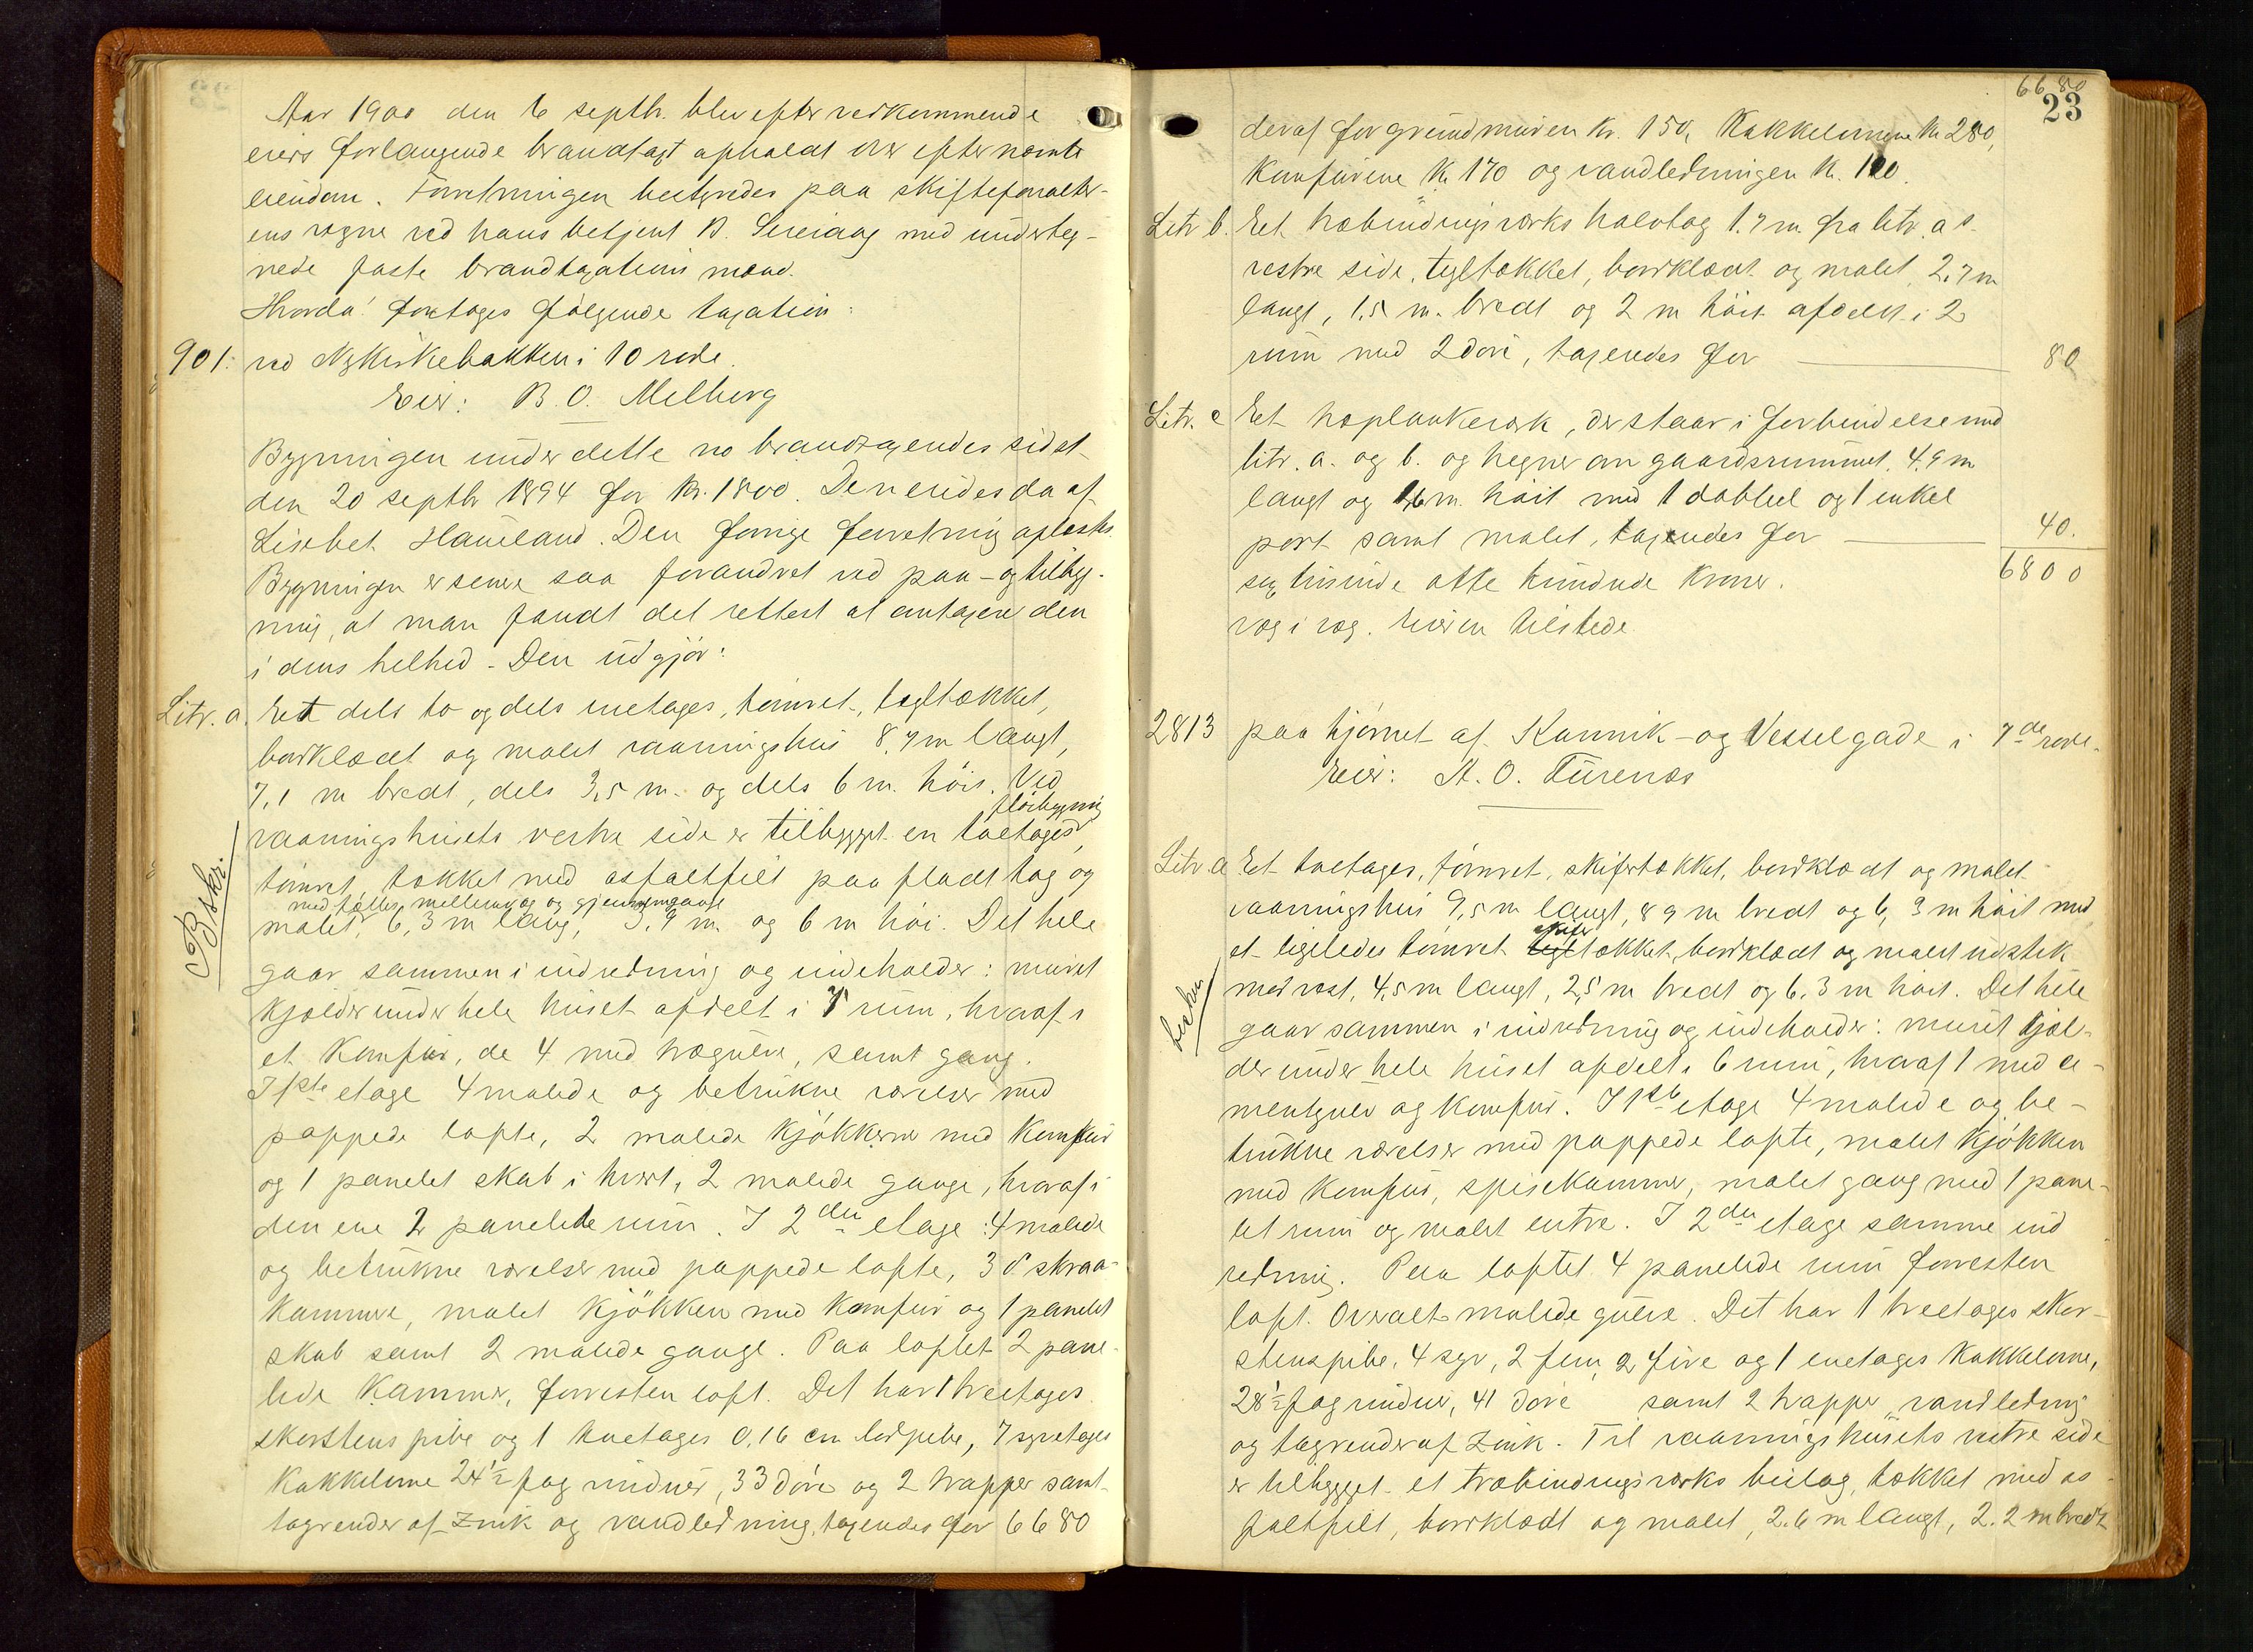 Aar 1900 den 6 septbr. blev efter vedkommende
eiers forlangende brandtaxt afholdt over efternævnte
eiendom. Forretningen bestyredes paa skifteforvalter-
ens vegne ved hans betjent B. Sereiaag med underteg-
nede faste brandtaxationsmænd.
Hvorda! foretoges følgende taxation:
901: ved Nykirkebakken i 10 rode.
Eier: B. O. Melberg
Bygningen under dette no brandtaxeredes sidst
den 20 septbr 1894 for Kr. 1800. Den eiedes da af
Lisebet Haueland. Den forrige forretning aplæstes.
Bygningen er senere saa forandret ved paa- og tilbyg-
ning, at man fandt det rettest at omtaxere den
i dens helhed. Den udgjør:
Litr. a. Et dels to og dels enetages, tømret, tegltækket,
bordklædt og malet vaaningshus 8,7 m langt,
7,1 m bredt, dels 3,5 m. og dels 6 m. høit. Ved
vaaningshusets vestre side er tilbygget en toetages fløibygning,
tømret, tækket med asfaltfilt paa fladt tag og
malet, med fælles mellemvæg og gjennemgange 6,3 m lang, 3,9 m. og 6 m høi. Det hele
Beskr.
gaar sammen i indredning og indeholder: muret
kjælder under hele huset afdelt i 7 rum, hvoraf i
et komfur, de 4 med trægulve, samt gang.
I 1ste etage 4 malede og betrukne værelser med
pappede lofte, 2 malede kjøkkene med komfur
og 1 panelet skab i hvert, 2 malede gange, hvoraf i
den ene 2 panelede rum. I 2den etage: 4 malede
og betrukne værelser med pappede lofte, 3 do skraa-
kammere, malet kjøkken med komfur og 1 panelet
skab samt 2 malede gange. Paa loftet 2 pane-
lede kammer, forresten loft. Det har 1 treetages
skorstenspibe og 1 toetages 0,16 cm lerpibe, 7 syvetages
kakkelovne 24½ fag vinduer, 33 døre og 2 trapper samt
tagrender af zink og vandledning, taxeredes for 6680
6680
23
deraf for grundmuren Kr. 150, Kakkelovnene Kr 280,
Komfurene Kr 170 og vandledningen Kr. 100.
Litr b. Et træbindingsværks halvtag 1.7 m. fra litr. a s.
vestre side, tegltækket, bordklædt og malet, 2,7 m
langt, 1,5 m. bredt og 2 m høit afdelt i 2
rum med 2 døre, taxeredes for 80
Litr. c Et træplankeværk, der staar i forbindelse med
litr. a. og b. og hegner om gaardsrummet, 4,9 m
langt og 1,6 m. høit med 1 dobbel og 1 enkel
port samt malet, taxeredes for 40.
sex tusinde otte hundrede Kroner. 6800
væg i væg. Eieren tilstede
2813 paa hjørnet af Kannik- og Vesselgade i 7de rode.
Eier: A. O. Turenæs
Litr. a Et toetages, tømret, skifertækket, bordklædt og malet
vaaningshus 9,5 m langt, 8 9 m bredt og 6, 3 m høit med
et ligeledes tømret tegl skifer tækket, bordklædt og malet udstik
beskr.
mod vest, 4,5 m langt, 2,5 m bredt og 6.3 m høit. Det hele
gaar sammen i indredning og indeholder: muret kjæl-
der under hele huset afdelt i 6 rum, hvoraf 1 med ce-
mentgulv og komfur. I 1ste etage 4 malede og be-
trukne værelser med pappede lofte, malet kjøkken
med komfur, spisekammer, malet gang med 1 pane-
let rum og malet entre. I 2den etage samme ind
redning. Paa loftet 4 panelede rum forresten
loft. Overalt malede gulve. Det har 1 treetages skor-
stenspibe, 4 syv, 2 fem, 2 fire og 1 enetages kakkelovne,
28½ fag vinduer, 41 døre samt 2 trapper vandledning
og tagrender af zink. Til vaaningshusets vestre side
er tilbygget et træbindingsværks bislag, tækket med as-
faltfilt, bordklædt og malet, 2.6 m langt, 2.2 m bredt